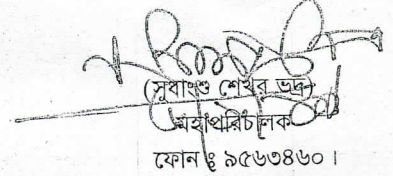 (সুধাংশু শেখর ভদ্র)
মহাপরিচালক
ফোন ঃ ৯৫৬৩৪৬০।